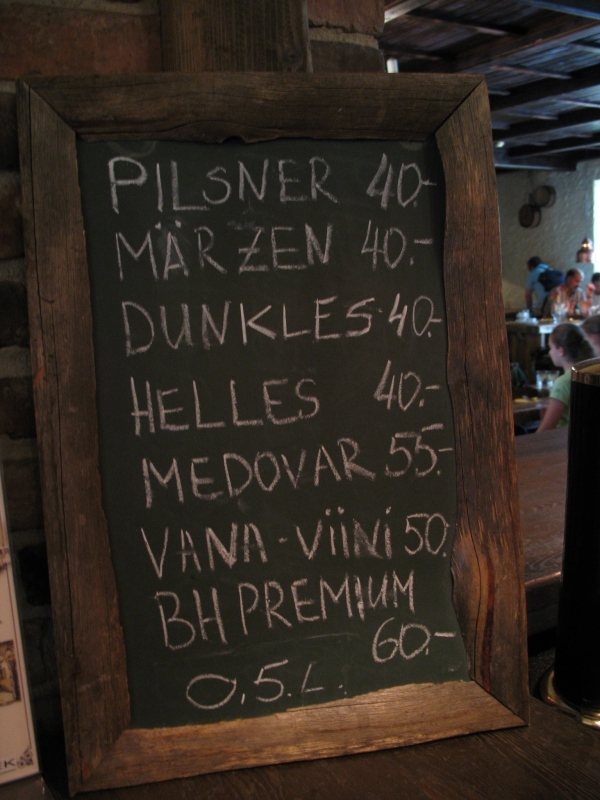 PILSNER 40.-
MÄRZEN 40.-
DUNKLES 40.-
HELLES 40.-
MEDOVAR 55.-
VANA-VIINI 50.
BH PREMIUM
60.-
0,5.L.